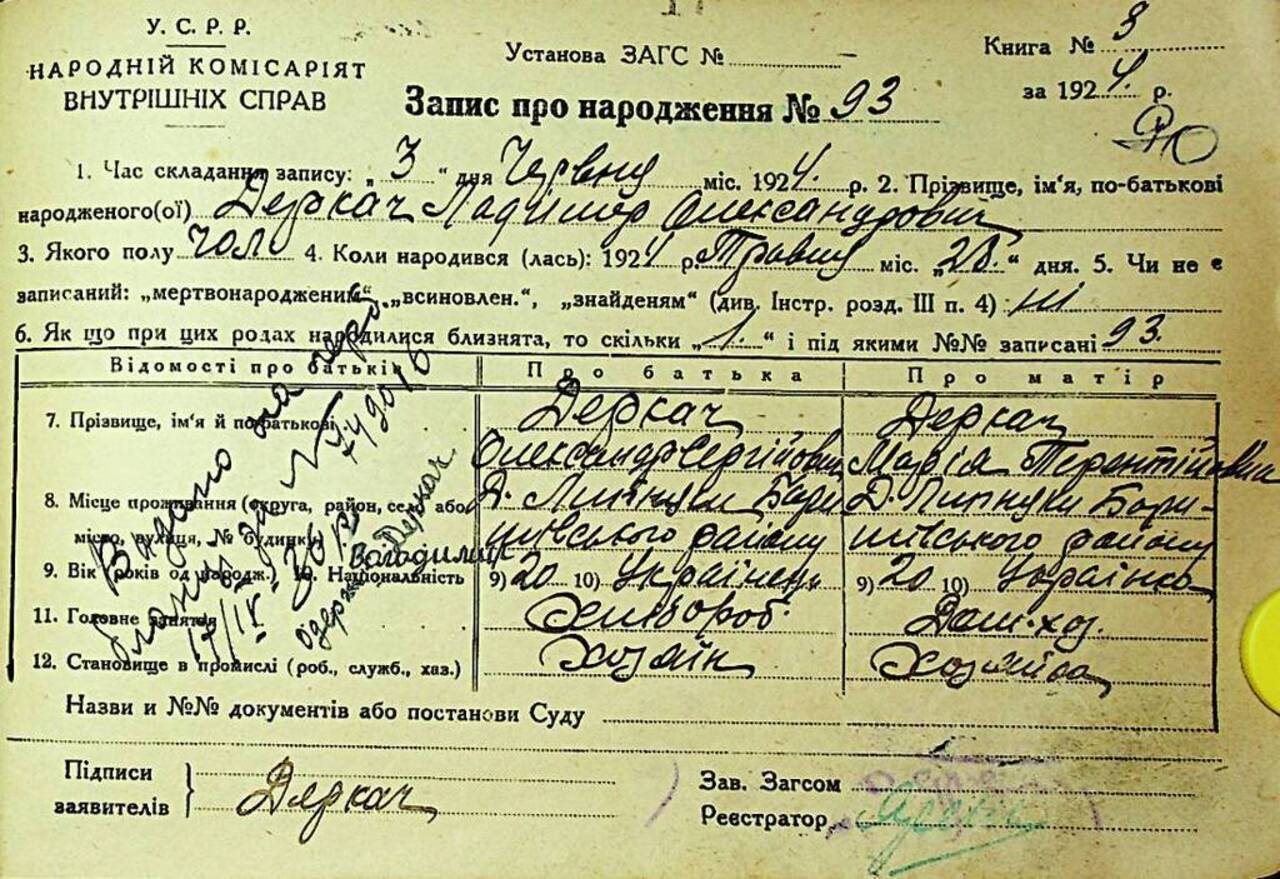 У. С. Р. Р.
НАРОДНІЙ КОМІСАРІЯТ
ВНУТРІШНІХ СПРАВ
Установа ЗАГС №
Книга № 3
за 1924 р.
Запис про народження № 93
1. Час складання запису: „ 3 “ дня Червня міс. 1924. р. 2. Прізвище, ім'я, по-батькові
народженого(ої) Деркач Ладімір Олександрович
3. Якого полу чол 4. Коли народився (лась): 1924 р. Травня міс. „28.“ дня. 5. Чи не є
записаний: „мертвонароджений“, „всиновлен.“, „знайденям“ (див. Інстр. розд. III п. 4) ні
6. Як що при цих родах народилися близнята, то скільки „1.“ і під якими №№ записані 93.
Відомості про батьків
Про батька
Про матір
7. Прізвище, ім'я й по-батькові
Деркач
Олександр Сергійович
Деркач
Марія Терентійовна
8. Місце проживання (округа, район, село або
місто, вулиця, № будинку)
Бори
шівського району
Бори-
шівського району
9. Вік (років од народж.), 10. Національність
9) 20 10) Українець
9) 20 10) Українка
11. Головне заняття
Хлібороб
Дом. хоз.
12. Становище в промислі (роб., служб., хаз.)
Хозяїн
Хозяйка
Видано на
17/IV 36 р.
Одержав Деркач
Володимир
Назви и №№ документів або постанови Суду
Підписи
заявителів
Деркач
Зав. Загсом
Реєстратор